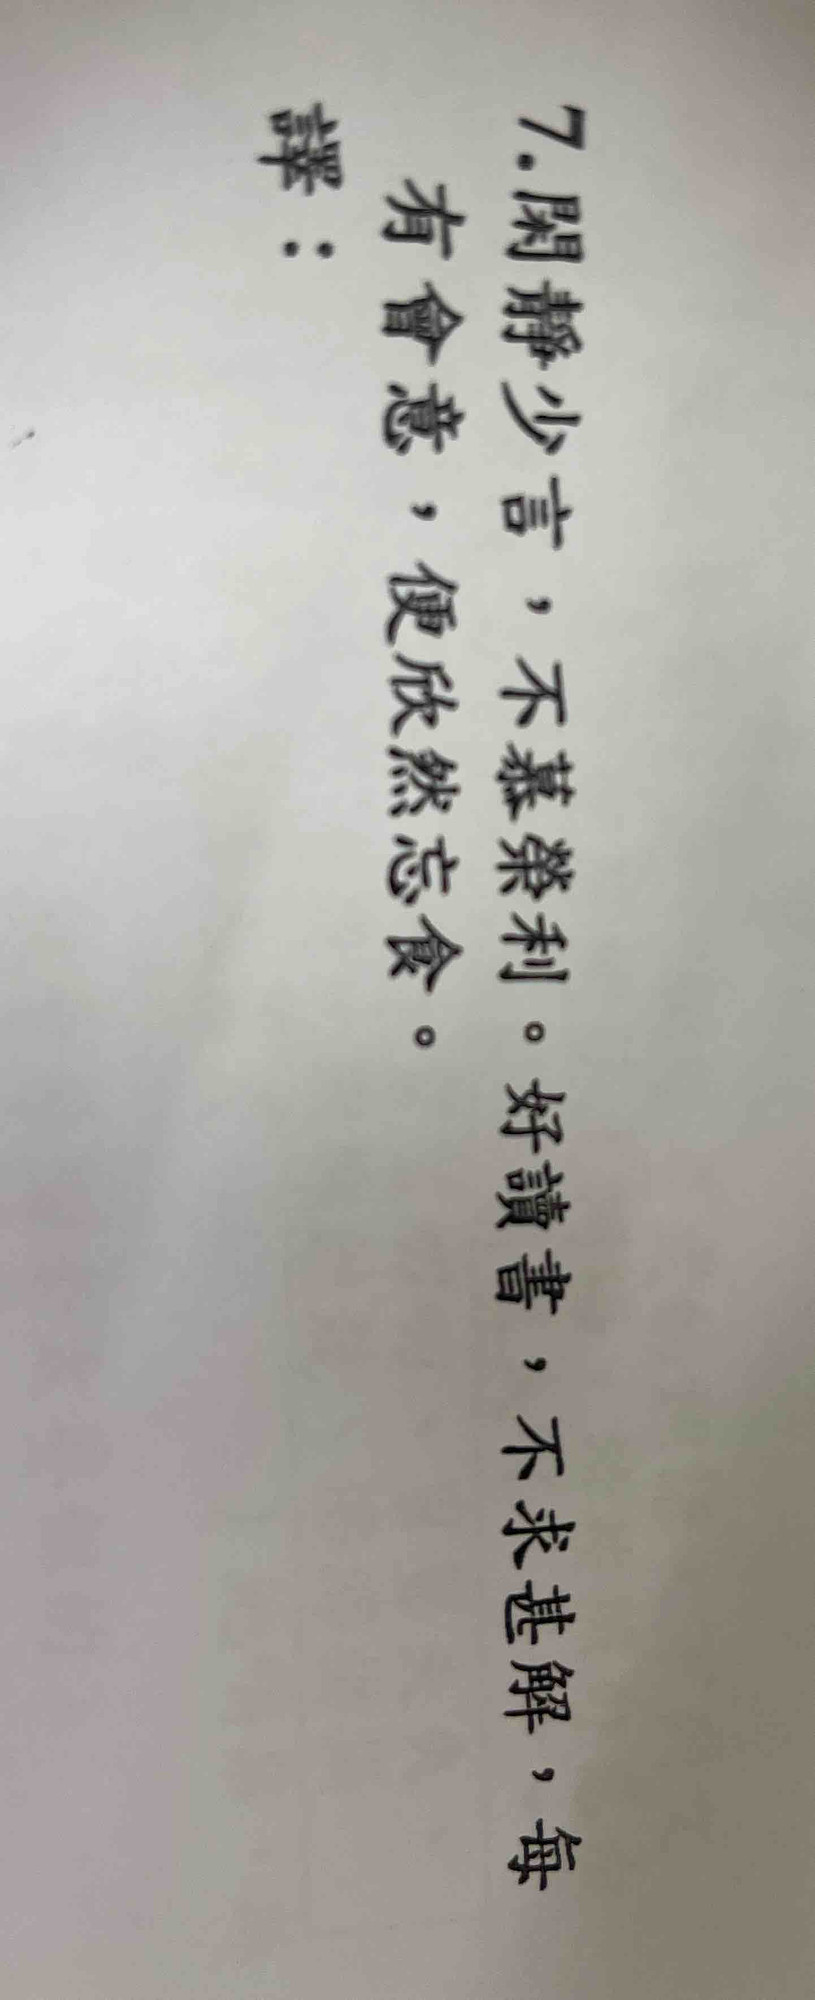 7.閑靜少言，不慕榮利。好讀書，不求甚解，每
有會意，便欣然忘食。
譯：